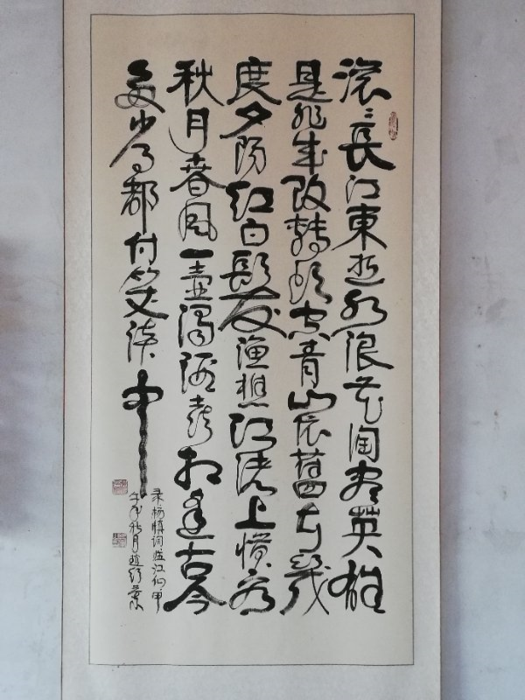 滚滚長江東逝水浪花淘尽英雄
是非成败轉頭空青山依舊在幾
度夕阳红白髮渔樵江渚上惯看
秋月春風一壶濁酒喜相逢古今
多少事都付笑谈中
录杨慎词临江仙甲
午年秋月